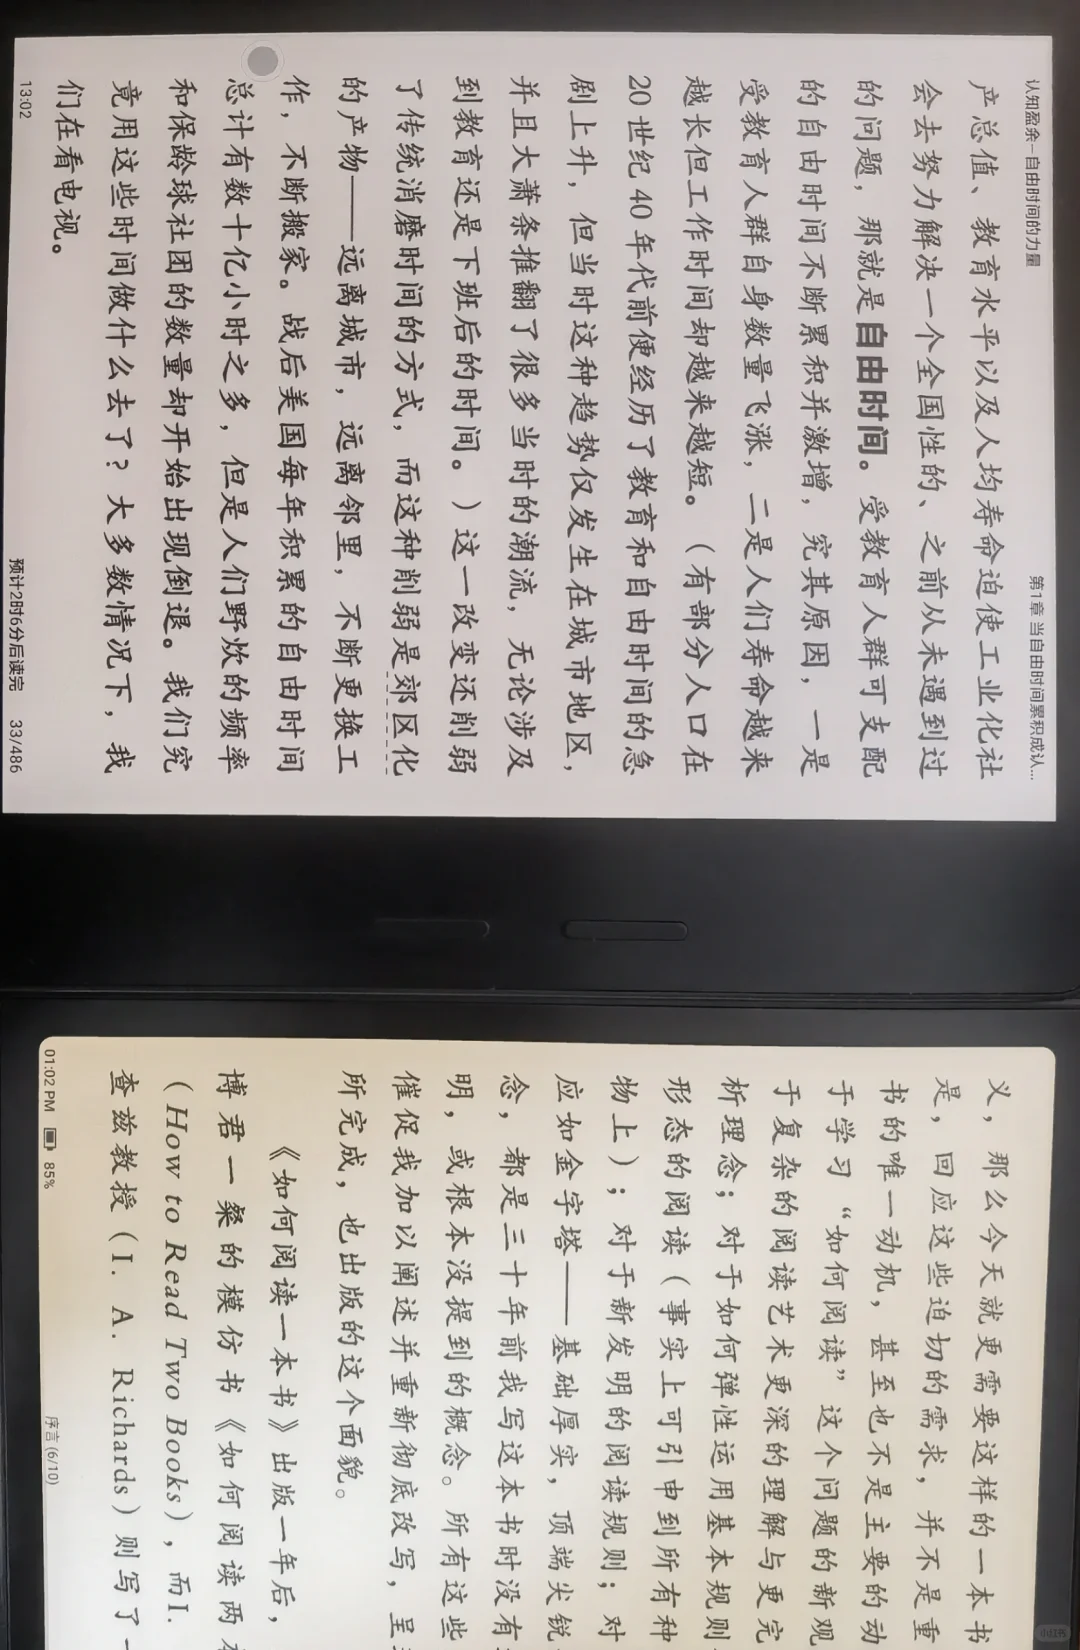 认知盈余-自由时间的力量
第1章 当自由时间累积成认...
产总值、教育水平以及人均寿命迫使工业化社
会去努力解决一个全国性的、之前从未遇到过
的问题，那就是自由时间。受教育人群可支配
的自由时间不断累积并激增，究其原因，一是
受教育人群自身数量飞涨，二是人们寿命越来
越长但工作时间却越来越短。（有部分人口在
20世纪40年代前便经历了教育和自由时间的急
剧上升，但当时这种趋势仅发生在城市地区，
并且大萧条推翻了很多当时的潮流，无论涉及
到教育还是下班后的时间。）这一改变还削弱
了传统消磨时间的方式，而这种削弱是郊区化
的产物——远离城市，远离邻里，不断更换工
作，不断搬家。战后美国每年积累的自由时间
总计有数十亿小时之多，但是人们野炊的频率
和保龄球社团的数量却开始出现倒退。我们究
竟用这些时间做什么去了？大多数情况下，我
们在看电视。
13:02
预计2时6分后读完
33/486
义，那么今天就更需要这样的一本书
是，回应这些迫切的需求，并不是重
书的唯一动机，甚至也不是主要的动
于学习“如何阅读”这个问题的新观
于复杂的阅读艺术更深的理解与更完
析理念；对于如何弹性运用基本规则
形态的阅读（事实上可引申到所有种
物上）；对于新发明的阅读规则；对
应如金字塔——基础厚实，顶端尖锐
念，都是三十年前我写这本书时没有
明，或根本没提到的概念。所有这些
催促我加以阐述并重新彻底改写，呈
所完成，也出版的这个面貌。
《如何阅读一本书》出版一年后，
博君一粲的模仿书《如何阅读两
（How to Read Two Books），而I.
查兹教授（I. A. Richards）则写了一
01:02 PM
85%
序言 (6/10)
小红书